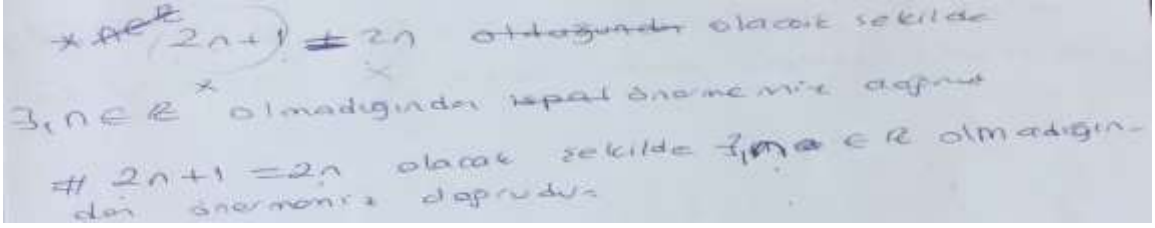 * 2n+1 ≠ 2n olacak şekilde
∃, n ∈ R olmadığından ispat önermemiz doğrudur
# 2n+1 = 2n olacak şekilde ∈ R olmadığın-
dan önermemiz doğrudur